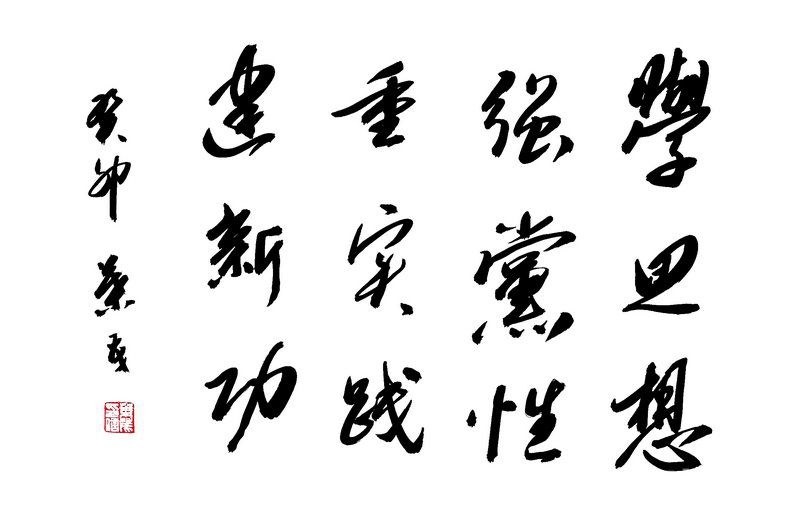 學思想
强黨性
重实践
建新功
癸卯